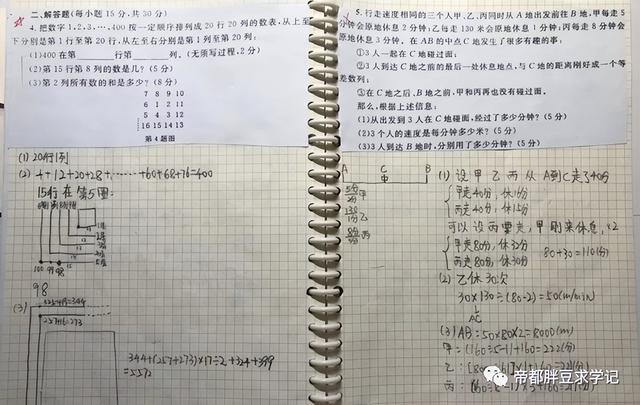 二、解答题(每小题 15 分,共 30 分)
4. 把数字 1、2、3、…、400 按一定顺序排列成 20 行 20 列的数表,从上至
下分别是第 1 行至第 20 行,从左至右分别是第 1 列至第 20 列:
(1)400 在第 行第 列。(无须写过程,2 分)
(2)第 15 行第 8 列的数是几?(5 分)
(3)第 2 列所有数的和是多少?(8 分)
7 8 9 10
6 1 2 11
5 4 3 12
16 15 14 13
第 4 题图
(1) 20行1列
(2) 4+12+20+28+……+60+68+76=400
15行在第5圈:
100 99 98
98
(3)
257+16=273
344+(257+273)×17÷2+324+399
=5572
5. 行走速度相同的三个人甲、乙、丙同时从 A 地出发前往 B 地,甲每走 5
分钟会原地休息 2 分钟;乙每走 130 米会原地休息 1 分钟;丙每走 8 分钟会
原地休息 3 分钟。在 AB 的中点 C 地发生了很多有趣的事:
①3 人一起在 C 地碰过面;
②3 人到达 C 地之前的最后一处休息地点,与 C 地的距离刚好成一个等
差数列;
③在 C 地之后、B 地之前,甲和丙再也没有碰过面。
那么,根据上述信息:
(1)从出发到 3 人在 C 地碰面,经过了多少分钟?(5 分)
(2)3 个人的速度是每分钟多少米?(5 分)
(3)3 人到达 B 地时,分别用了多少分钟?(5 分)
A C B
中
甲
乙
丙
(1) 设甲乙丙从A到C走了40分
甲走40分,休14分
丙走40分,休12分
可以设丙要走,甲刚来休息,×2
甲走80分,休32分
丙走80分,休30分
80+30=110(分)
(2) 乙休30次
30×130÷(80-2)=50(m/min)
AC
(3) AB:50×80×2=8000(m)
甲:(160÷5-1)×2+160=222(分)
帝都胖豆求学记